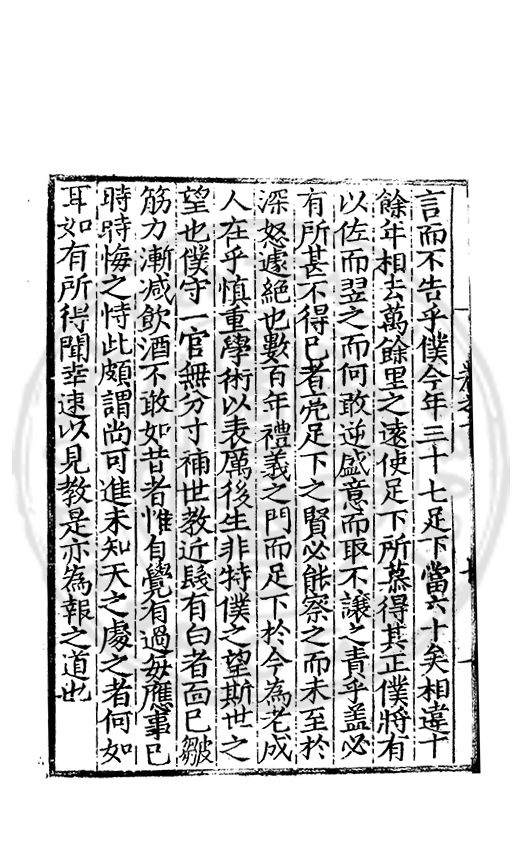 言而不告乎僕今年三十七足下當六十矣相違十
餘年相去萬餘里之遠使足下所慕得其正僕將有
以佐而翌之而何敢逆盛意而取不讓之責乎盖必
有所甚不得已者党足下之賢必能察之而未至於
深怒遽絶也數百年禮義之門而足下於今為老成
人在乎慎重學術以表厲後生非特僕之望斯世之
望也僕守一官無分寸補世教近髮有白者面已皺
筋力漸减飲酒不敢如昔者惟自覺有過每應事已
時時悔之恃此頗謂尚可進未知天之處之者何如
耳如有所得聞幸速以見教是亦為報之道也